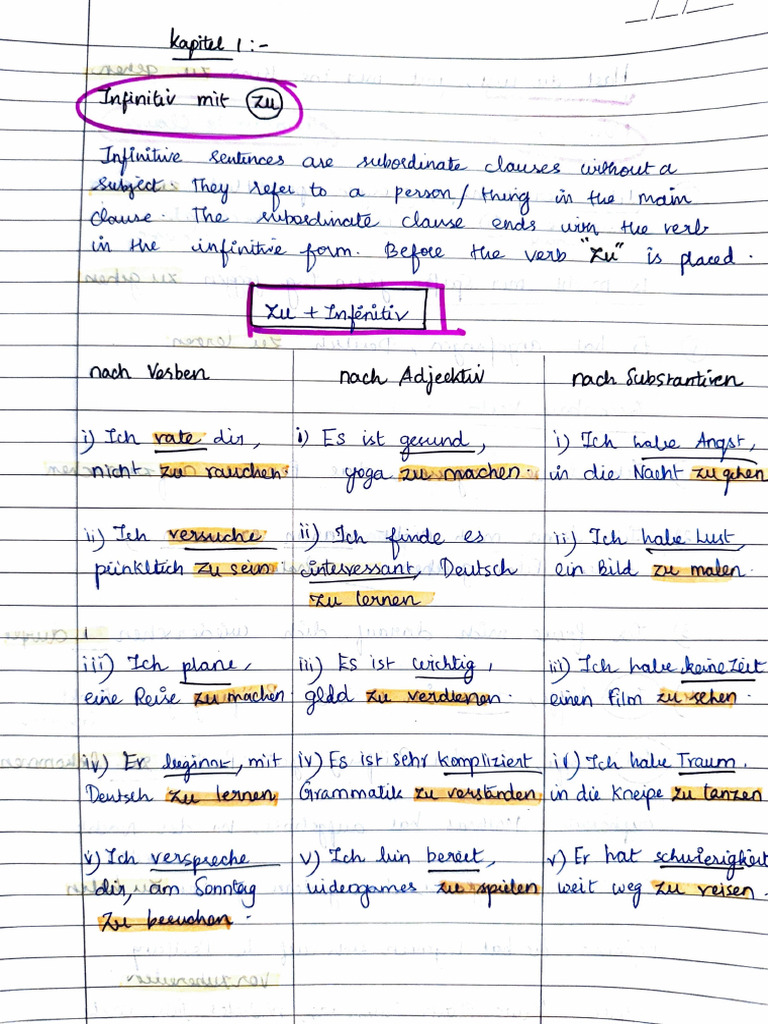 Kapitel 1 :-
Infinitiv mit zu
Infinitive sentences are subordinate clauses without a
subject. They refer to a person/thing in the main
clause. The subordinate clause ends with the verb
in the infinitive form. Before the verb "zu" is placed.
zu + Infinitiv
nach Verben
i) Ich rate dir,
nicht zu rauchen.
ii) Ich versuche
pünktlich zu sein
iii) Ich plane,
eine Reise zu machen
iv) Er beginnt, mit
Deutsch zu lernen
v) Ich verspreche
dir, am Sonntag
zu besuchen.
nach Adjektiv
i) Es ist gesund,
yoga zu machen.
ii) Ich finde es
interressant, Deutsch
zu lernen
iii) Es ist wichtig,
geld zu verdienen.
iv) Es ist sehr kompliziert
Grammatik zu verständen
v) Ich bin bereit,
videogames zu spielen
nach Substantiven
i) Ich habe Angst,
in die Nacht zu gehen
ii) Ich habe Lust,
ein Bild zu malen.
iii) Ich habe keine Zeit
einen Film zu sehen.
iv) Ich habe Traum.
in die Kneipe zu tanzen
v) Er hat schwierigkeit
weit weg zu reisen.